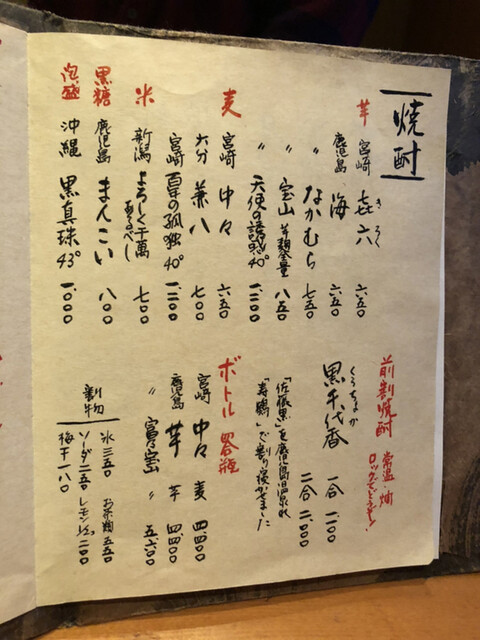 焼酎
芋
宮崎 㐂六 六五〇
きろく
鹿児島 海 六五〇
〃 なかむら 七五〇
〃 宝山 芋麹全量 八五〇
〃 天使の誘惑 40° 一、二〇〇
麦
宮崎 中々 六五〇
大分 兼八 七〇〇
宮崎 百年の孤独 40° 一、二〇〇
米
新潟 よろしく千萬あるべし 七〇〇
黒糖
鹿児島 まんこい 八〇〇
泡盛
沖縄 黒真珠 43° 一、〇〇〇
前割焼酎 常温・燗
ロックでどうぞ!
くろぢょか
黒千代香 一合 一、〇〇〇
二合 二、〇〇〇
「佐藤黒」を鹿児島温泉水
「寿鶴」で割り寝かせました
ボトル 四合瓶
宮崎 中々 麦 四、四〇〇
鹿児島 芋 芋 四、四〇〇
〃 富乃宝山 〃 五、六〇〇
割物
氷 三五〇 お茶類 五五〇
ソーダ 二五〇 レモン 二〇〇
梅干 一八〇